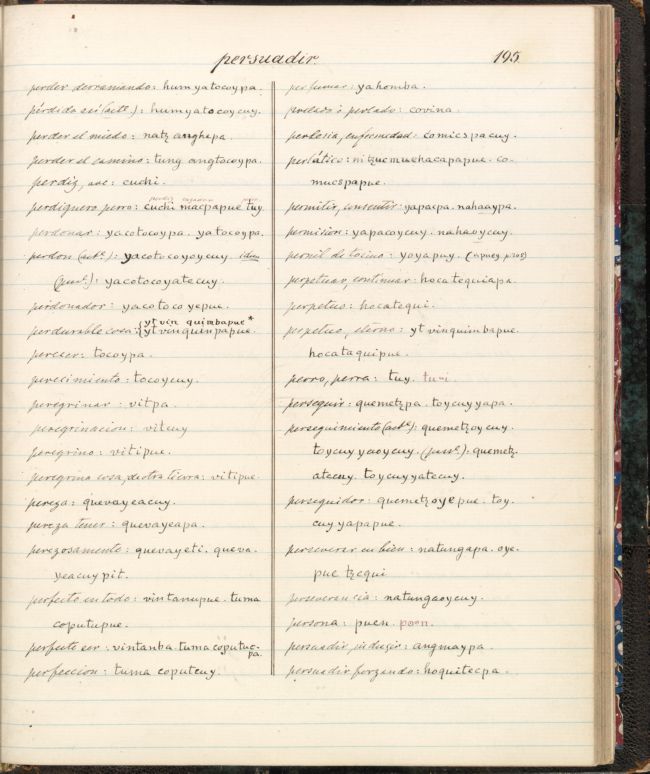 persuadir.
195
perder derramando: humyatocoypa.
pérdida así (actˢ.): humyatocoycuy.
perder el miedo: natz anghepa.
perder el camino: tung angtocoypa.
perdiz, ave: cuchi.
perdiguero, perro: cuchi macpapue tuy.
perdonar: yacotocoypa. yatocoypa.
perdon (actˢ.): yacotocoyoycuy. idem
(pasˢ.): yacotocoyatecuy.
perdonador: yacotocoyepue.
perdurable cosa: { yt vin quimbapue *
{ yt vinquinpapue.
perecer: tocoypa.
perecimiento: tocoycuy.
peregrinar: vitpa.
peregrinacion: vitcuy
peregrino: vitipue.
peregrina cosa, de otra tierra: vitipue.
pereza: quevayeacuy.
pereza tener: quevayeapa.
perezosamente: quevayeti. queva-
yeacuy pit.
perfeito en todo: vintanupue. tuma
coputupue.
perfecto ser: vintanba. tuma coputuc-
pa.
perfeccion: tuma coputcuy.
perfumar: yahomba.
perlado: covina.
perlesia, enfermedad: comicspacuy.
perlático: nitzucmuchacapapue. co-
mucspapue.
permitir, consentir: yapacpa. nahaaypa.
permision: yapacoycuy. nahaoycuy.
pernil de tocino: yoyapuy.
perpetuar, continuar: hocatequiapa.
perpetuo: hocatequi.
perpetuo, eterno: yt vinquimbapue.
hocataquipue.
perro, perra: tuy. tuṡi.
perseguir: quemetzpa. toycuyyapa.
perseguimiento (actˢ.): quemetzoycuy.
toycuyyaoycuy. (pasˢ.): quemetz-
atecuy. toycuyyatecuy.
perseguidor: quemetzoyepue. toy-
cuyyapapue.
perseverar en bien: natungapa. oye-
pue tzequi
perseverancia: natungaoycuy.
persona: puen. poon.
persuadir, inducir: angmaypa.
persuadir forzando: hoquitecpa.